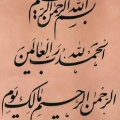 بسم الله الرحمن الرحیم
الحمد لله رب العالمین
الرحمن الرحیم مالک یوم